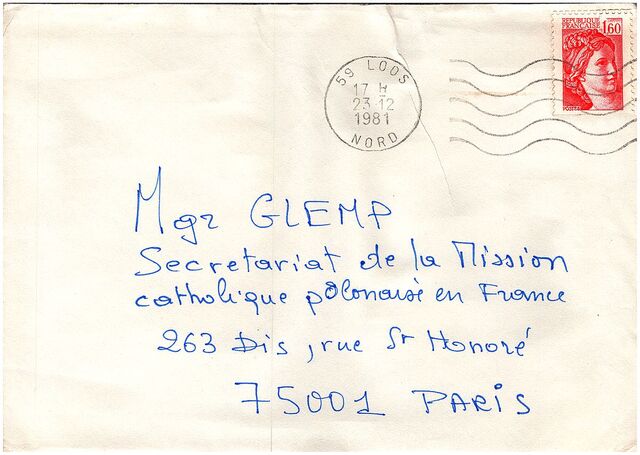 REPUBLIQUE
FRANÇAISE 1,60
59 LOOS
17 H
23-12
1981
NORD
Mgr GLEMP
Secretariat de la Mission
catholique polonaise en France
263 Bis, rue St Honoré
75001 PARIS